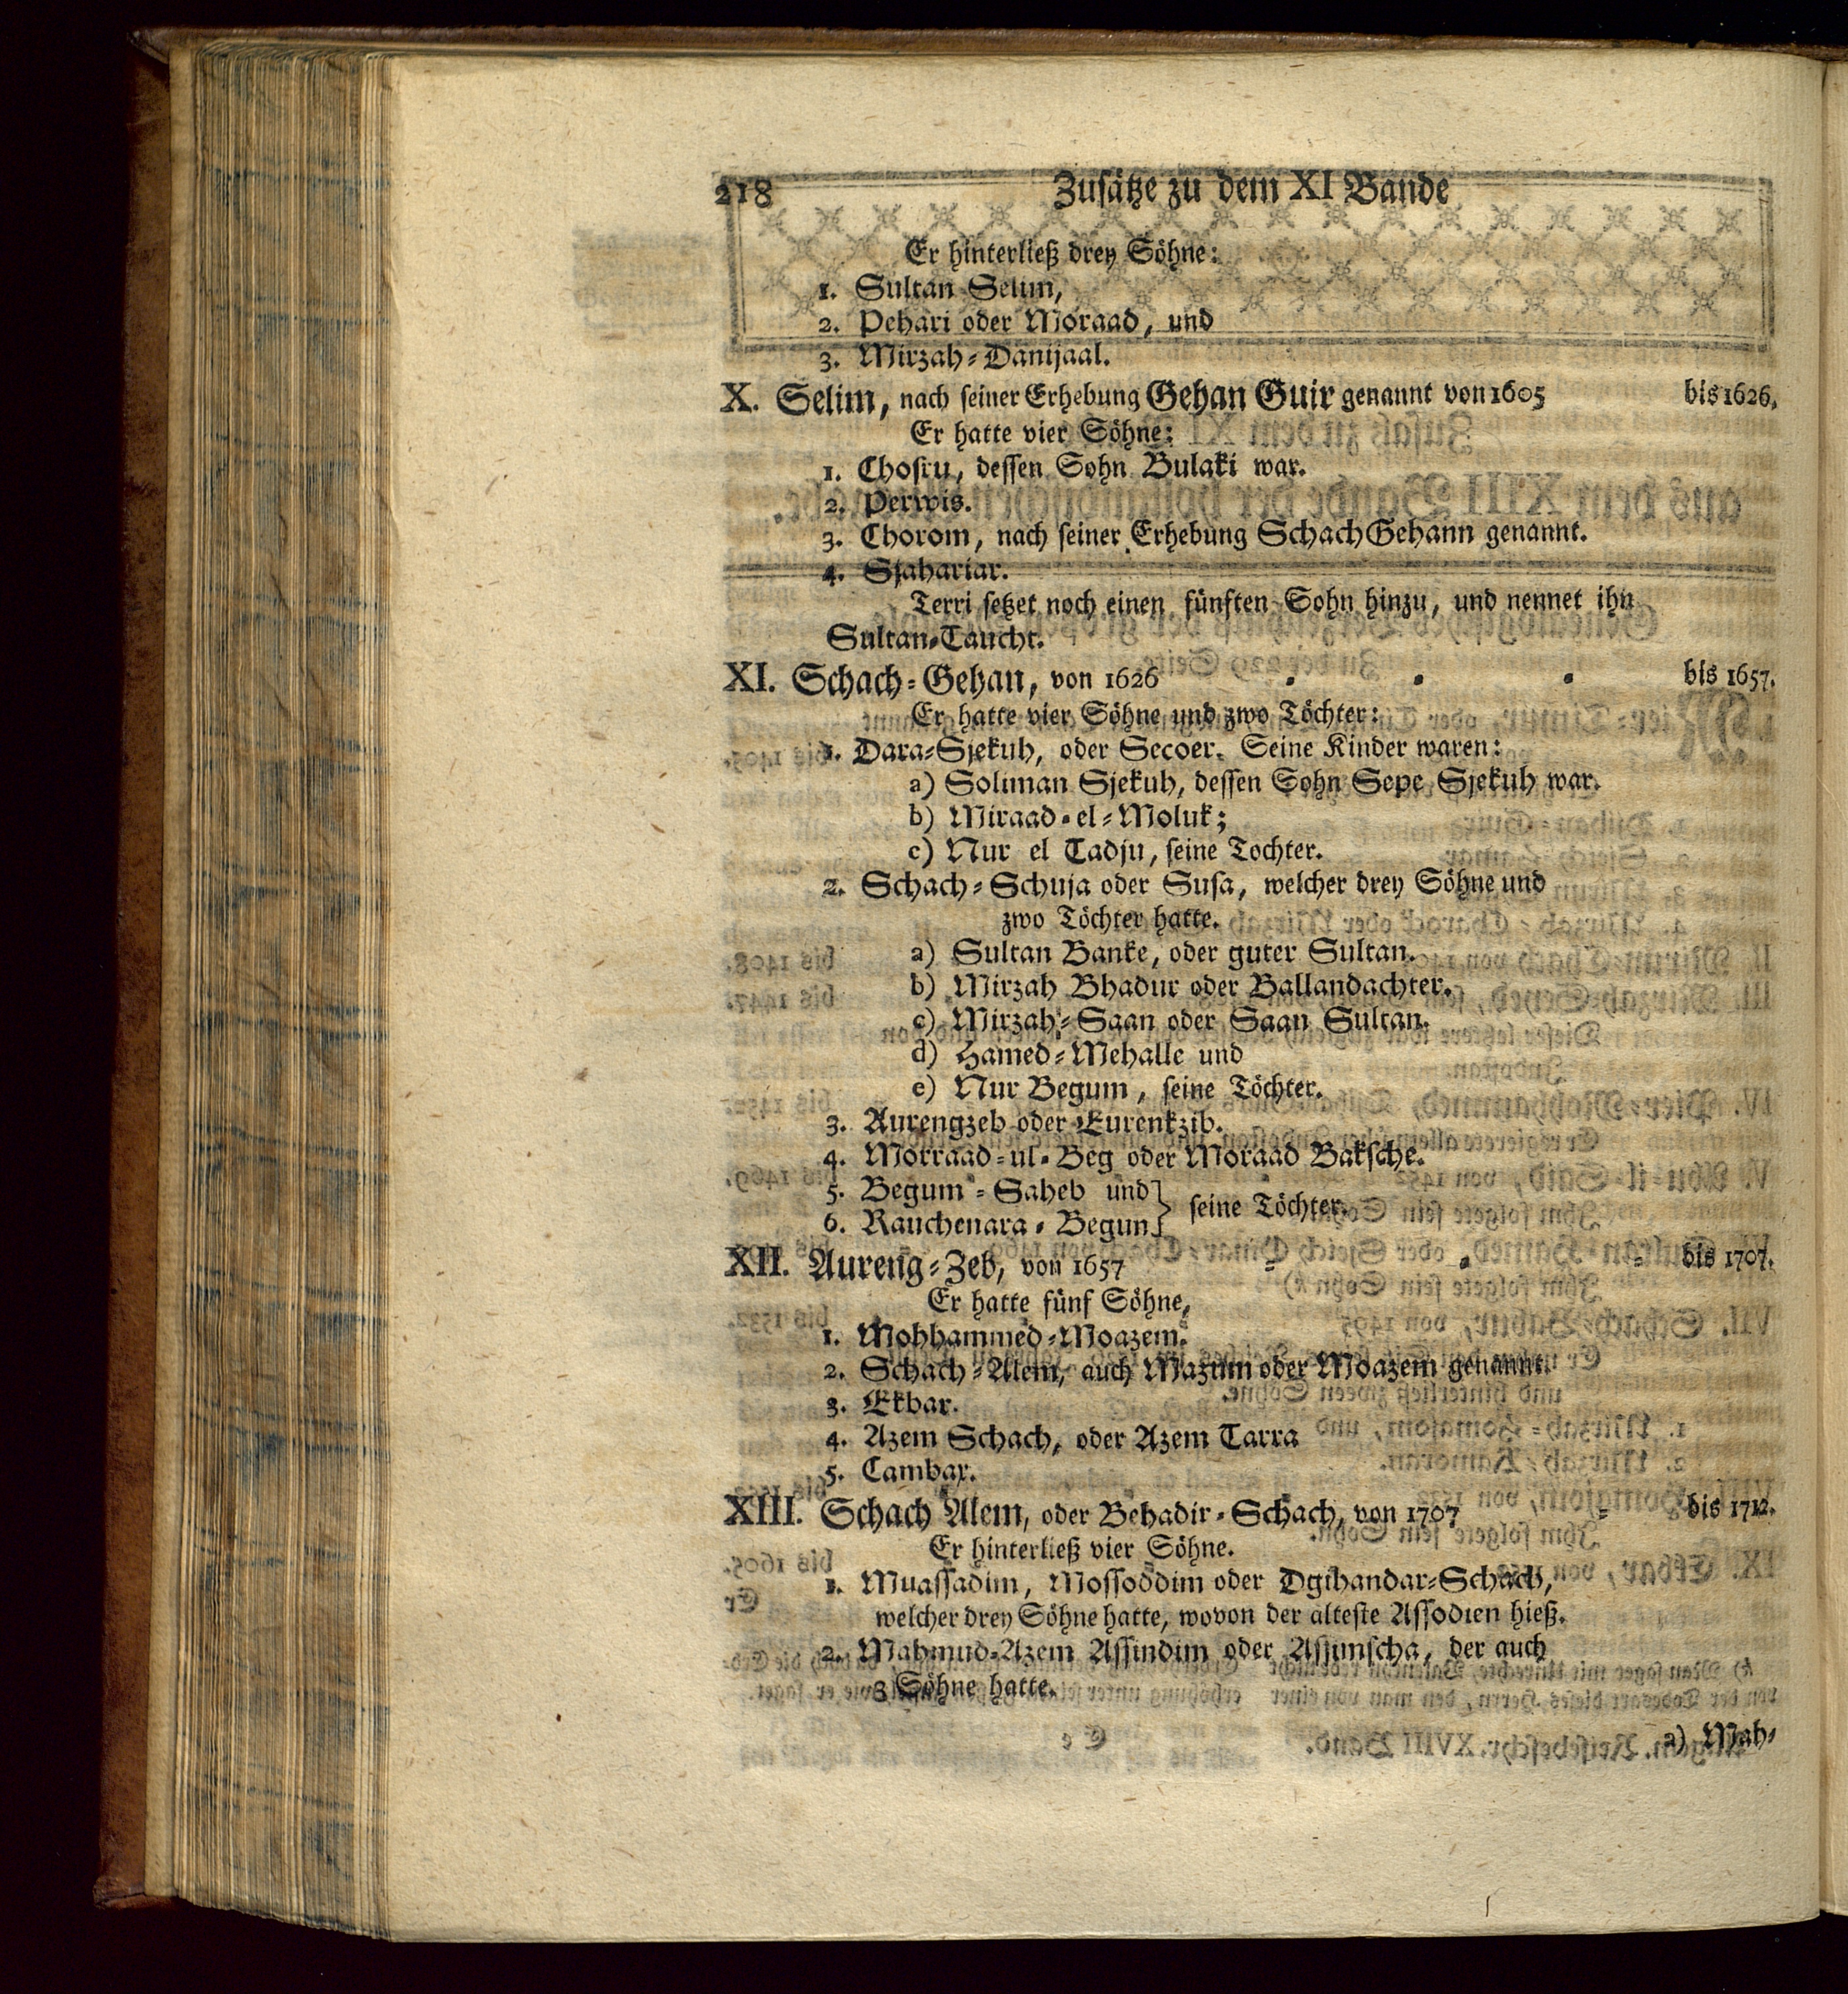 218 Zusätze zu dem XI Bande
Er hinterließ drey Söhne:
1. Sultan Selim,
2. Pehari oder Moraad, und
3. Mirzah-Danijaal.
X. Selim, nach seiner Erhebung Gehan Guir genannt von 1605 bis 1626.
Er hatte vier Söhne:
1. Chosru, dessen Sohn Bulaki war.
2. Perwis.
3. Chorom, nach seiner Erhebung Schach Gehann genannt.
4. Sjahariar.
Terri setzet noch einen fünften Sohn hinzu, und nennet ihn
Sultan-Taucht.
XI. Schach-Gehan, von 1626 - - - bis 1657.
Er hatte vier Söhne und zwo Töchter:
1. Dara-Sjekuh, oder Secoer. Seine Kinder waren:
a) Soliman Sjekuh, dessen Sohn Sepe Sjekuh war.
b) Miraad-el-Moluk;
c) Nur el Tadju, seine Tochter.
2. Schach-Schuja oder Susa, welcher drey Söhne und
zwo Töchter hatte.
a) Sultan Banke, oder guter Sultan.
b) Mirzah Bhadur oder Ballandachter.
c) Mirzah-Saan oder Saan Sultan.
d) Hamed-Mehalle und
e) Nur Begum, seine Töchter.
3. Aurengzeb oder Eurenkzib.
4. Morraad-ul-Beg oder Moraad Baksche.
5. Begum-Saheb und
6. Rauchenara-Begun } seine Töchter.
XII. Aureng-Zeb, von 1657 - - - bis 1707.
Er hatte fünf Söhne,
1. Mohhammed-Moazem.
2. Schach-Alem, auch Mazum oder Moazem genannt.
3. Ekbar.
4. Azem Schach, oder Azem Tarra
5. Cambax.
XIII. Schach Alem, oder Behadir-Schach, von 1707 - bis 1712.
Er hinterließ vier Söhne.
1. Muassadim, Mossoddim oder Dgihandar-Schach,
welcher drey Söhne hatte, wovon der älteste Assodien hieß.
2. Mahmud-Azem Assindim oder Assimscha, der auch
3 Söhne hatte.
a) Mah-